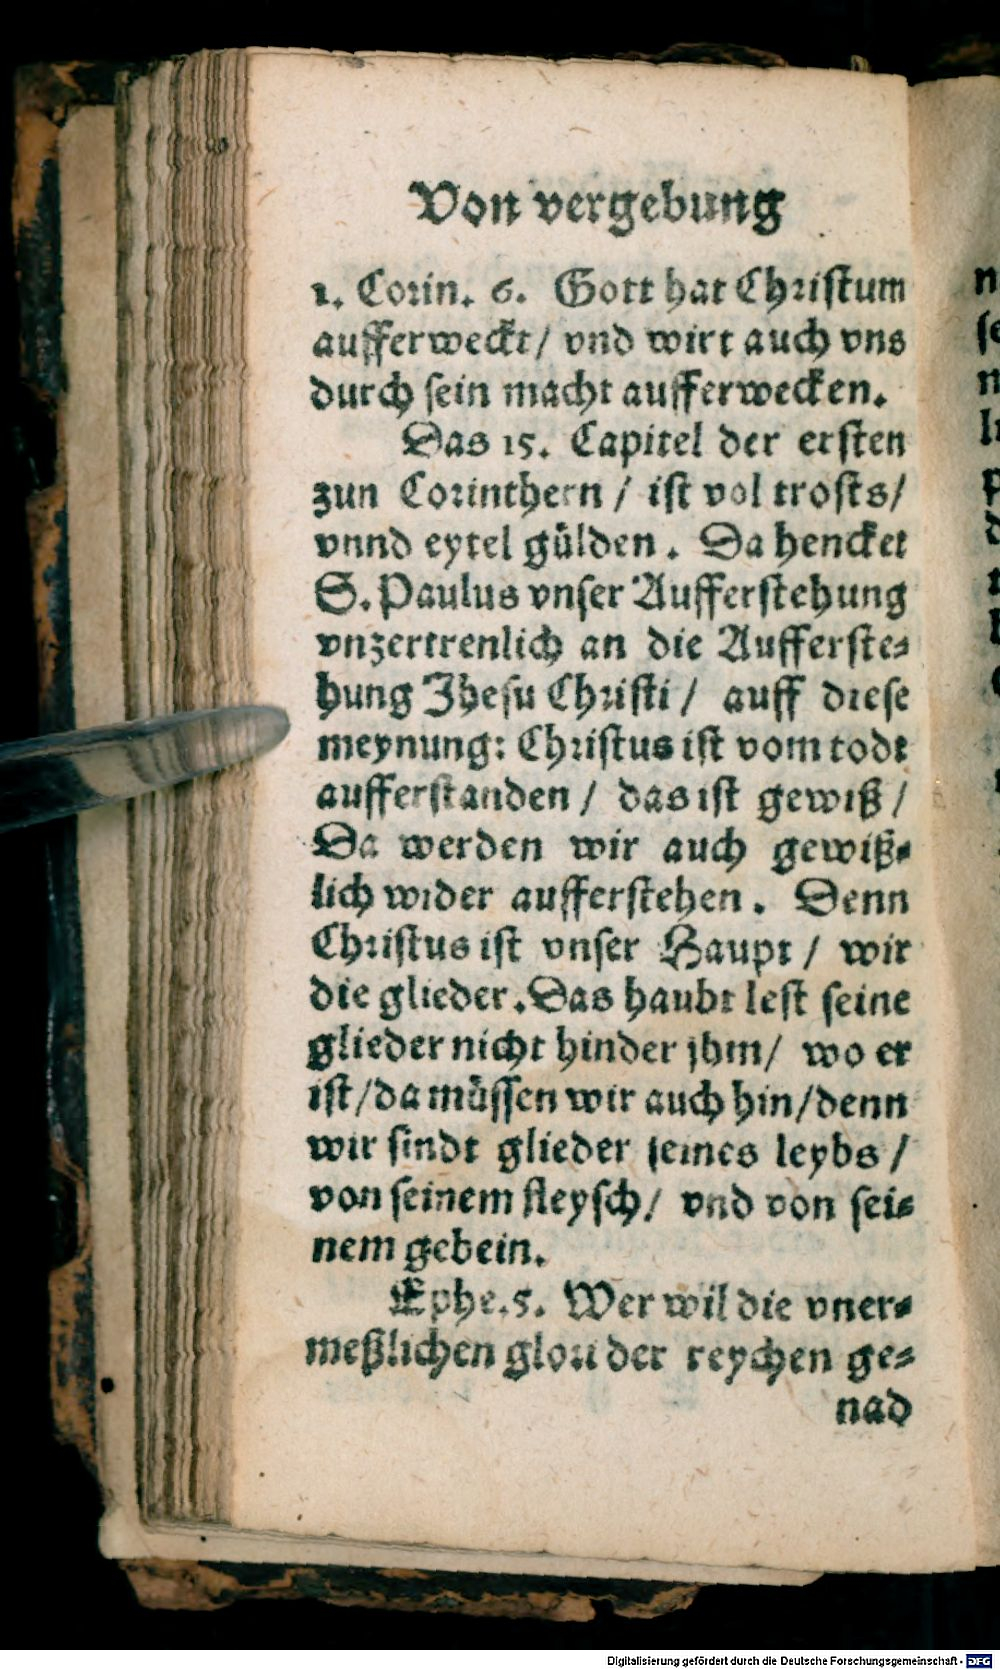 Von vergebung
1. Corin. 6. Gott hat Christum
aufferweckt/ vnd wirt auch vns
durch sein macht aufferwecken.
Das 15. Capitel der ersten
zun Corinthern / ist vol trosts/
vnnd eytel gülden. Da hencket
S. Paulus vnser Aufferstehung
vnzertrenlich an die Aufferste-
hung Jhesu Christi / auff diese
meynung: Christus ist vom todt
aufferstanden / das ist gewiß /
Da werden wir auch gewiß-
lich wider aufferstehen. Denn
Christus ist vnser Haupt / wir
die glieder. Das haubt lest seine
glieder nicht hinder jhm/ wo er
ist/da müssen wir auch hin/denn
wir sindt glieder seines leybs /
von seinem fleysch/ vnd von sei-
nem gebein.
Ephe. 5. Wer wil die vner-
meßlichen glori der reychen ge-
nad
n
se
n
p
Digitalisierung gefördert durch die Deutsche Forschungsgemeinschaft - DFG